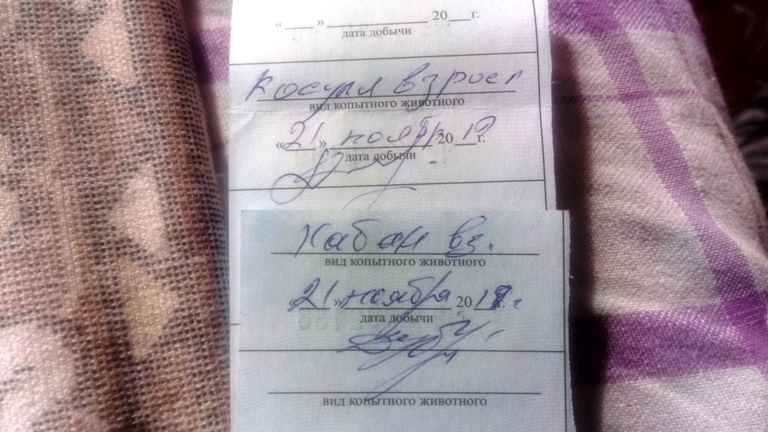 « » 20 г.
дата добычи
Косуля взросл
вид копытного животного
«21» ноября 20 г.
дата добычи
Кабан вз.
вид копытного животного
«21» ноября 201 г
дата добычи
вид копытного животного